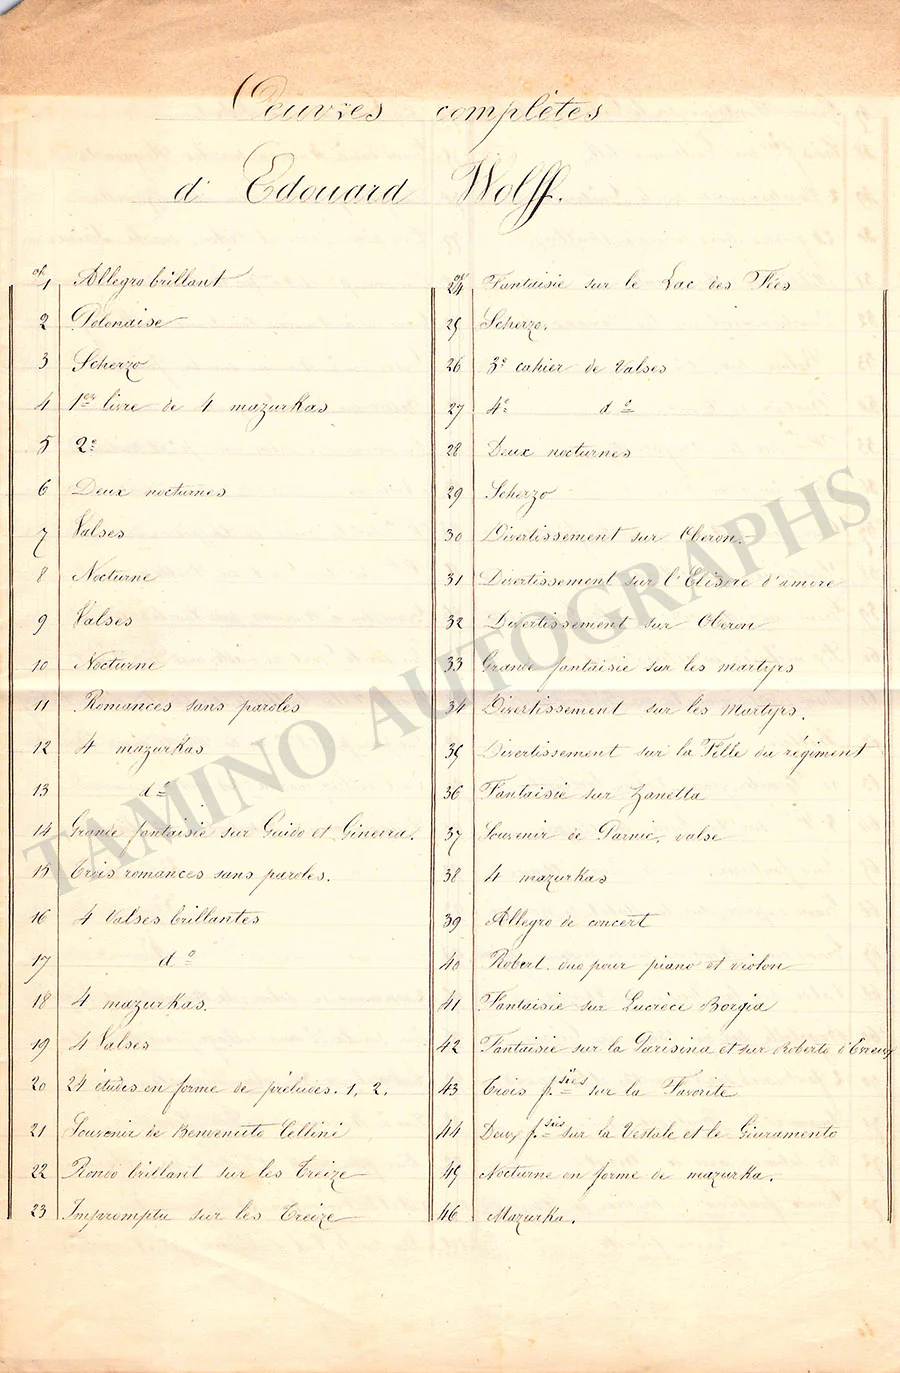 Oeuvres complètes
d'Edouard Wolff.
op. 1 Allegro brillant
2 Polonaise
3 Scherzo
4 1er livre de 4 mazurkas
5 2e
6 Deux nocturnes
7 Valses
8 Nocturne
9 Valses
10 Nocturne
11 Romances sans paroles
12 4 mazurkas
13 do
14 Grande fantaisie sur Guido et Ginevra.
15 Trois romances sans paroles.
16 4 Valses brillantes
17 do
18 4 mazurkas.
19 4 Valses
20 24 études en forme de préludes. 1, 2.
21 Souvenir de Benvenuto Cellini
22 Rondo brillant sur les Treize
23 Impromptu sur les Treize
op 24 Fantaisie sur le Lac des Fées
25 Scherzo.
26 3e cahier de Valses
27 4e do
28 Deux nocturnes
29 Scherzo
30 Divertissement sur Oberon.
31 Divertissement sur l'Elisire d'amore
32 Divertissement sur Oberon
33 Grande fantaisie sur les martyrs
34 Divertissement sur les Martyrs.
35 Divertissement sur la Fille du régiment
36 Fantaisie sur Zanetta
37 Souvenir de Parnic. valse
38 4 mazurkas
39 Allegro de concert
40 Robert. duo pour piano et violon
41 Fantaisie sur Lucrèce Borgia
42 Fantaisie sur la Parisina et sur Roberto d'Evreux
43 Trois f.sies sur la Favorite
44 Deux f.sies sur la Vestale et le Giuramento
45 Nocturne en forme de mazurka.
46 Mazurka.
TAMINO AUTOGRAPHS